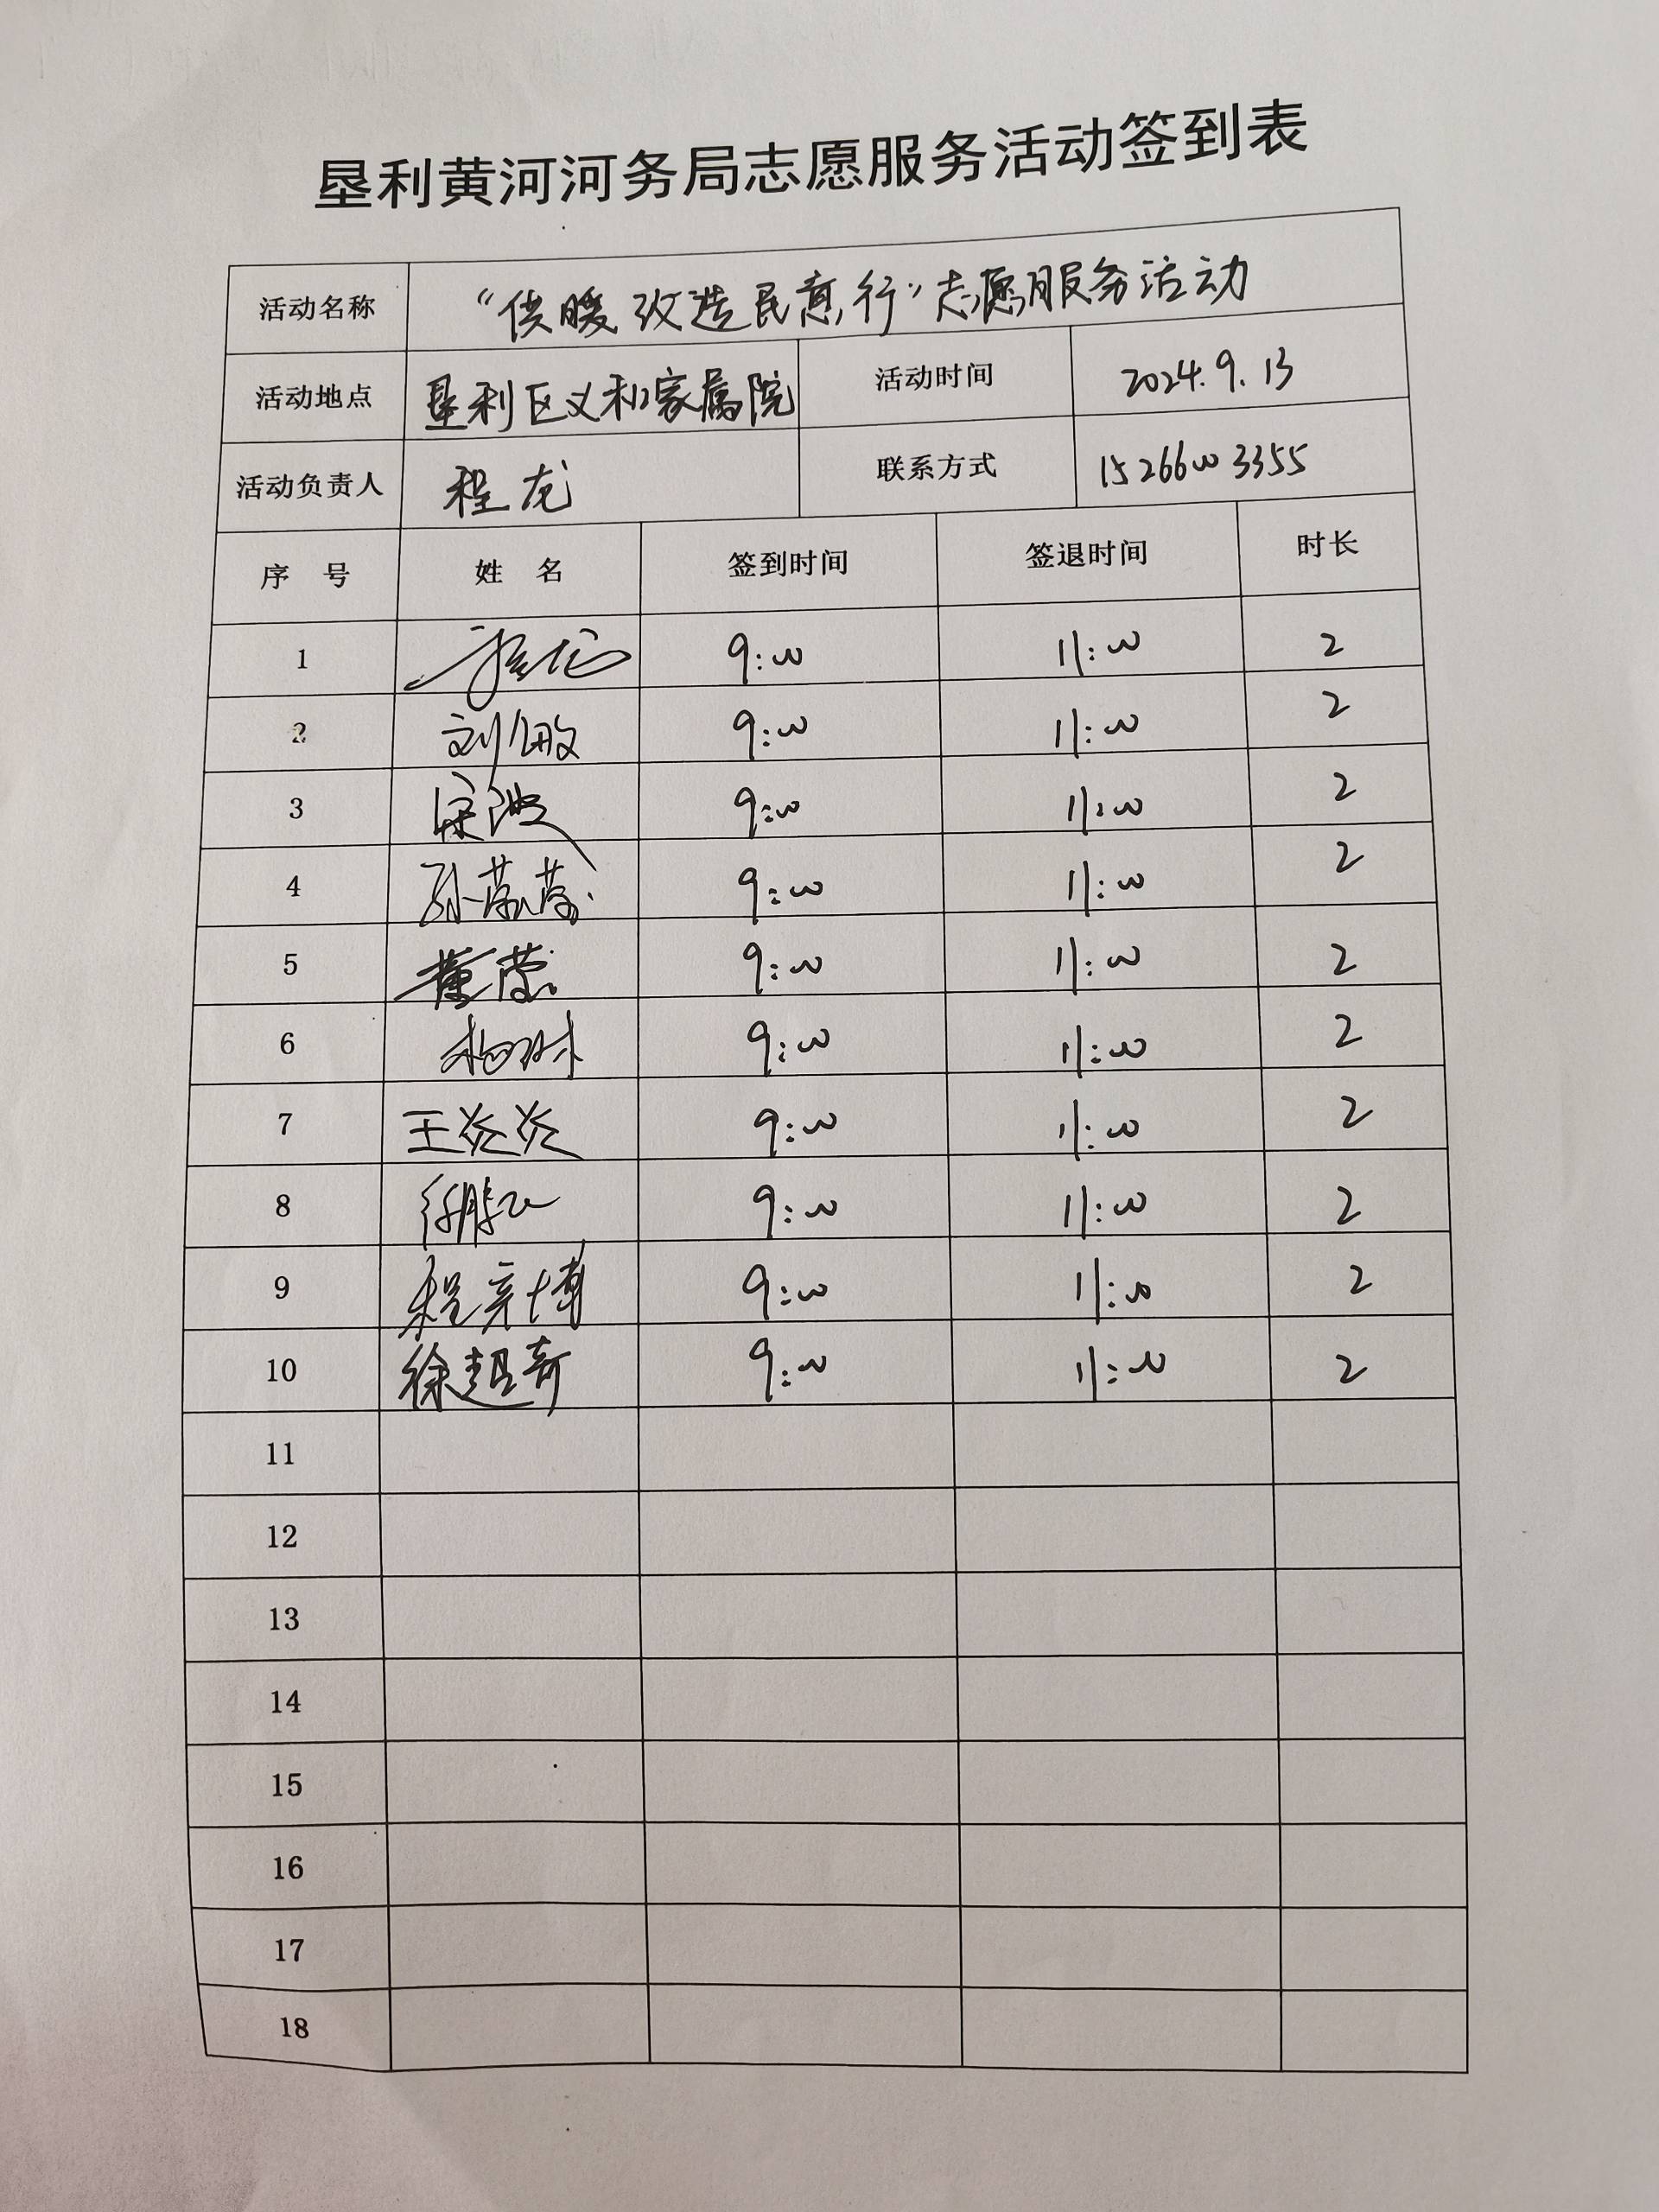 垦利黄河河务局志愿服务活动签到表
活动名称 “供暖改造民意行”志愿服务活动
活动地点 垦利区义和家属院 活动时间 2024.9.13
活动负责人 程龙 联系方式 15266003355
序 号 姓 名 签到时间 签退时间 时长
1 程龙 9:00 11:00 2
2 刘敏 9:00 11:00 2
3 宋波 9:00 11:00 2
4 孙 9:00 11:00 2
5 董 9:00 11:00 2
6 杨琳 9:00 11:00 2
7 王炎炎 9:00 11:00 2
8 9:00 11:00 2
9 程彦博 9:00 11:00 2
10 徐超奇 9:00 11:00 2
11
12
13
14
15
16
17
18